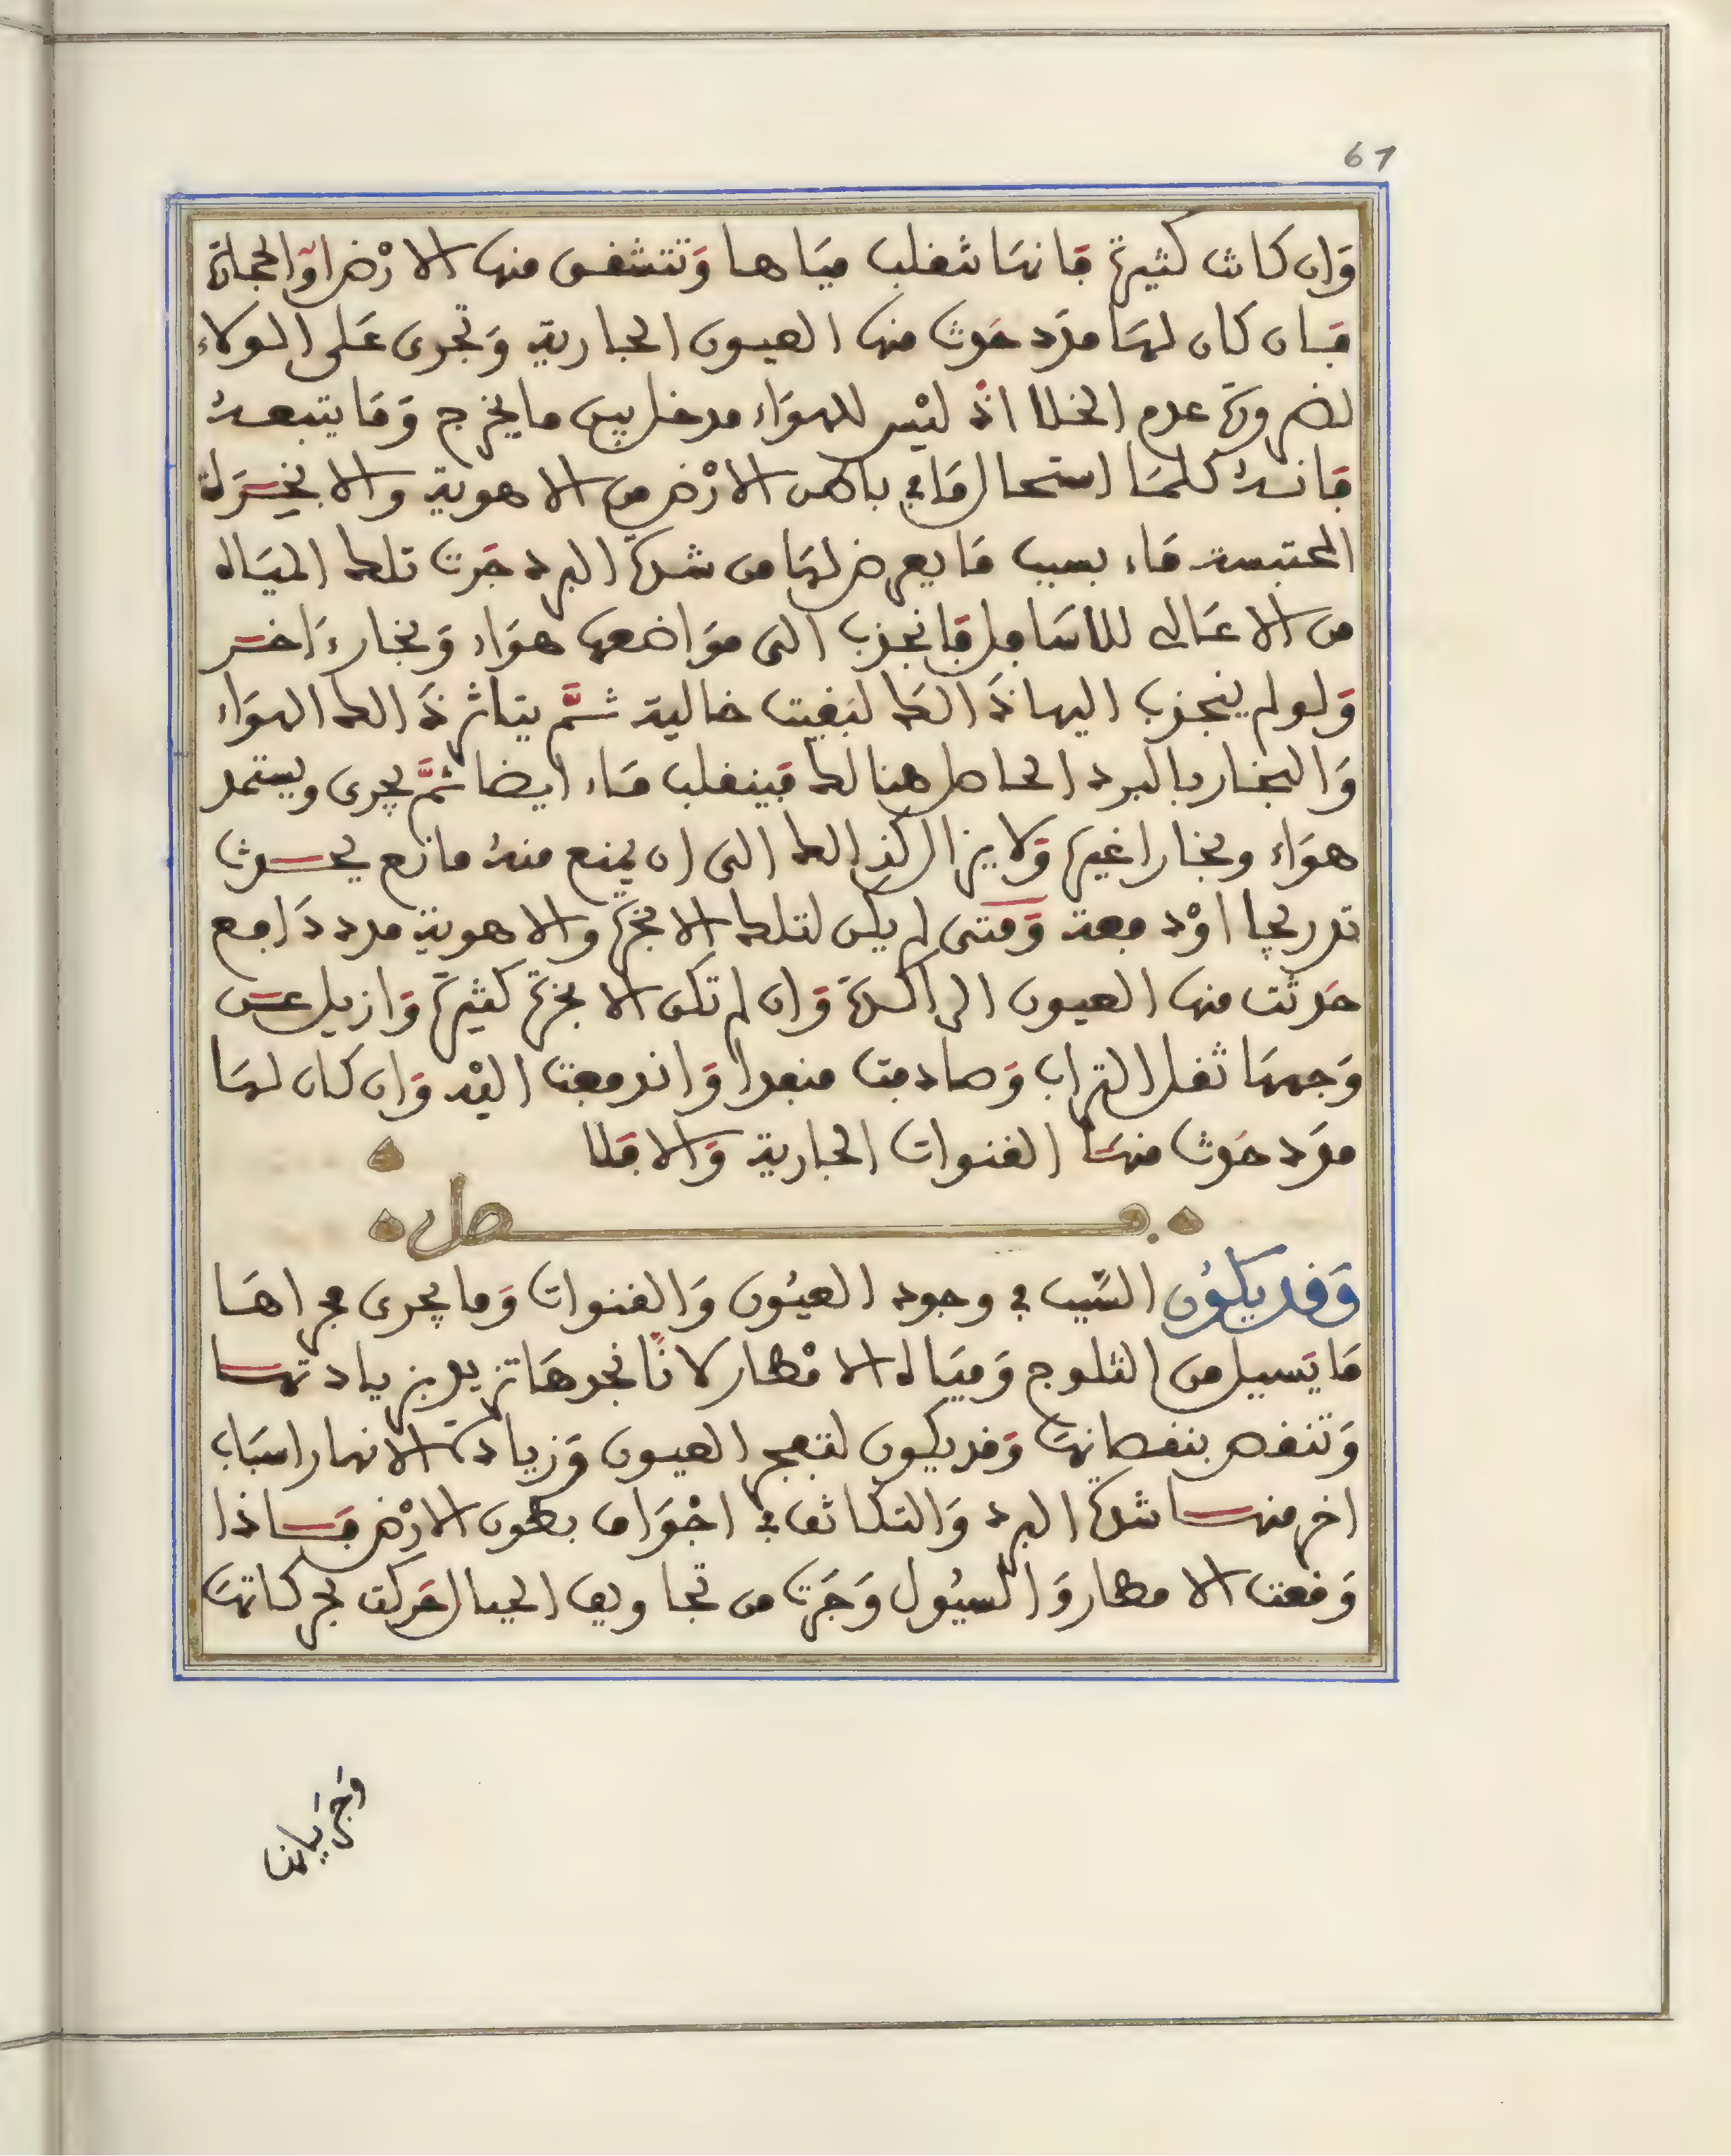 67
وَان كانت كثيرة فانها تنقلب مياها وَتتشفق منها الارْض اوَالحجارة
فان كان لها مدد حدث منها العيون الجارية وَتجرى عَلى الولاء
لضرورة عدم الخلا اذْ ليْس للهوَاء مدخل بين ما يخرج وَمَا يتبعهُ
فانهُ كلما استحال مَا في باطن الارْض من الاهوية والابخرَة
المحتبسة مَاء بسبب مَا يعرض لها من شدّة البرد جَرت تلك المياه
من الاعَالى للاسَافل فانجذب الى موَاضعها هوَاء وَبخارءَاخر
وَلولم ينجذب اليها ذَالك لبَقيت خالية ثمَّ يتاثر ذَالك الهوَاء
وَالبخار بالبرد الحاصل هنالك فينقلب مَاء ايضا ثمَّ يجرى ويستمد
هوَاء وبخارا غيره وَلا يزال كذالك الى ان يمنع منهُ مانع يحدث
تدريجا اوْ دفعة وَمَتى لم يكن لتلك الابخرة والاهوية مدد دَافع
حَدثت منها العيون الراكدة وَان لم تكن الابخرة كثيرة وَازيل عن
وَجهها ثقل التراب وَصادفت منفدا وَاندفعت اليْه وَان كان لها
مدَد حَدث منها القنوات الجارية وَالا فلا
فصل
وَقد يكوُن السَّبب في وجود العيُون وَالقنوات وَما يجرى مجراهَا
مَا يَسيل من الثلوج وَميَاه الامْطار لانا نجدهَا تزيد بزيادتها
وَتنقص بنقصانها وَقد يكون لتفجر العيون وَزيادَة الانهار اسبَاب
اخر منها شدة البرد وَالتكاثف في اجْوَاف بطون الارْض فاذا
وَقعت الامطار وَالسيُول وَجَرَت من تجاويف الجبال تحَركت بحركاتها
وَجريانها